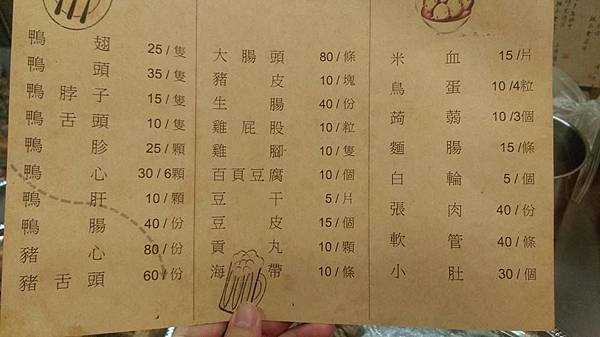 鴨翅 25/隻
鴨頭 35/隻
鴨脖子 15/隻
鴨舌頭 10/隻
鴨胗 25/顆
鴨心 30/6顆
鴨肝 10/顆
鴨腸 40/份
豬心 80/份
豬舌頭 60/份
大腸頭 80/條
豬皮 10/塊
生腸 40/份
雞屁股 10/粒
雞腳 10/隻
百頁豆腐 10/個
豆干 5/片
豆皮 15/個
貢丸 10/顆
海帶 10/條
米血 15/片
鳥蛋 10/4粒
蒟蒻 10/3個
麵腸 15/條
白輪 5/個
張肉 40/份
軟管 40/條
小肚 30/個